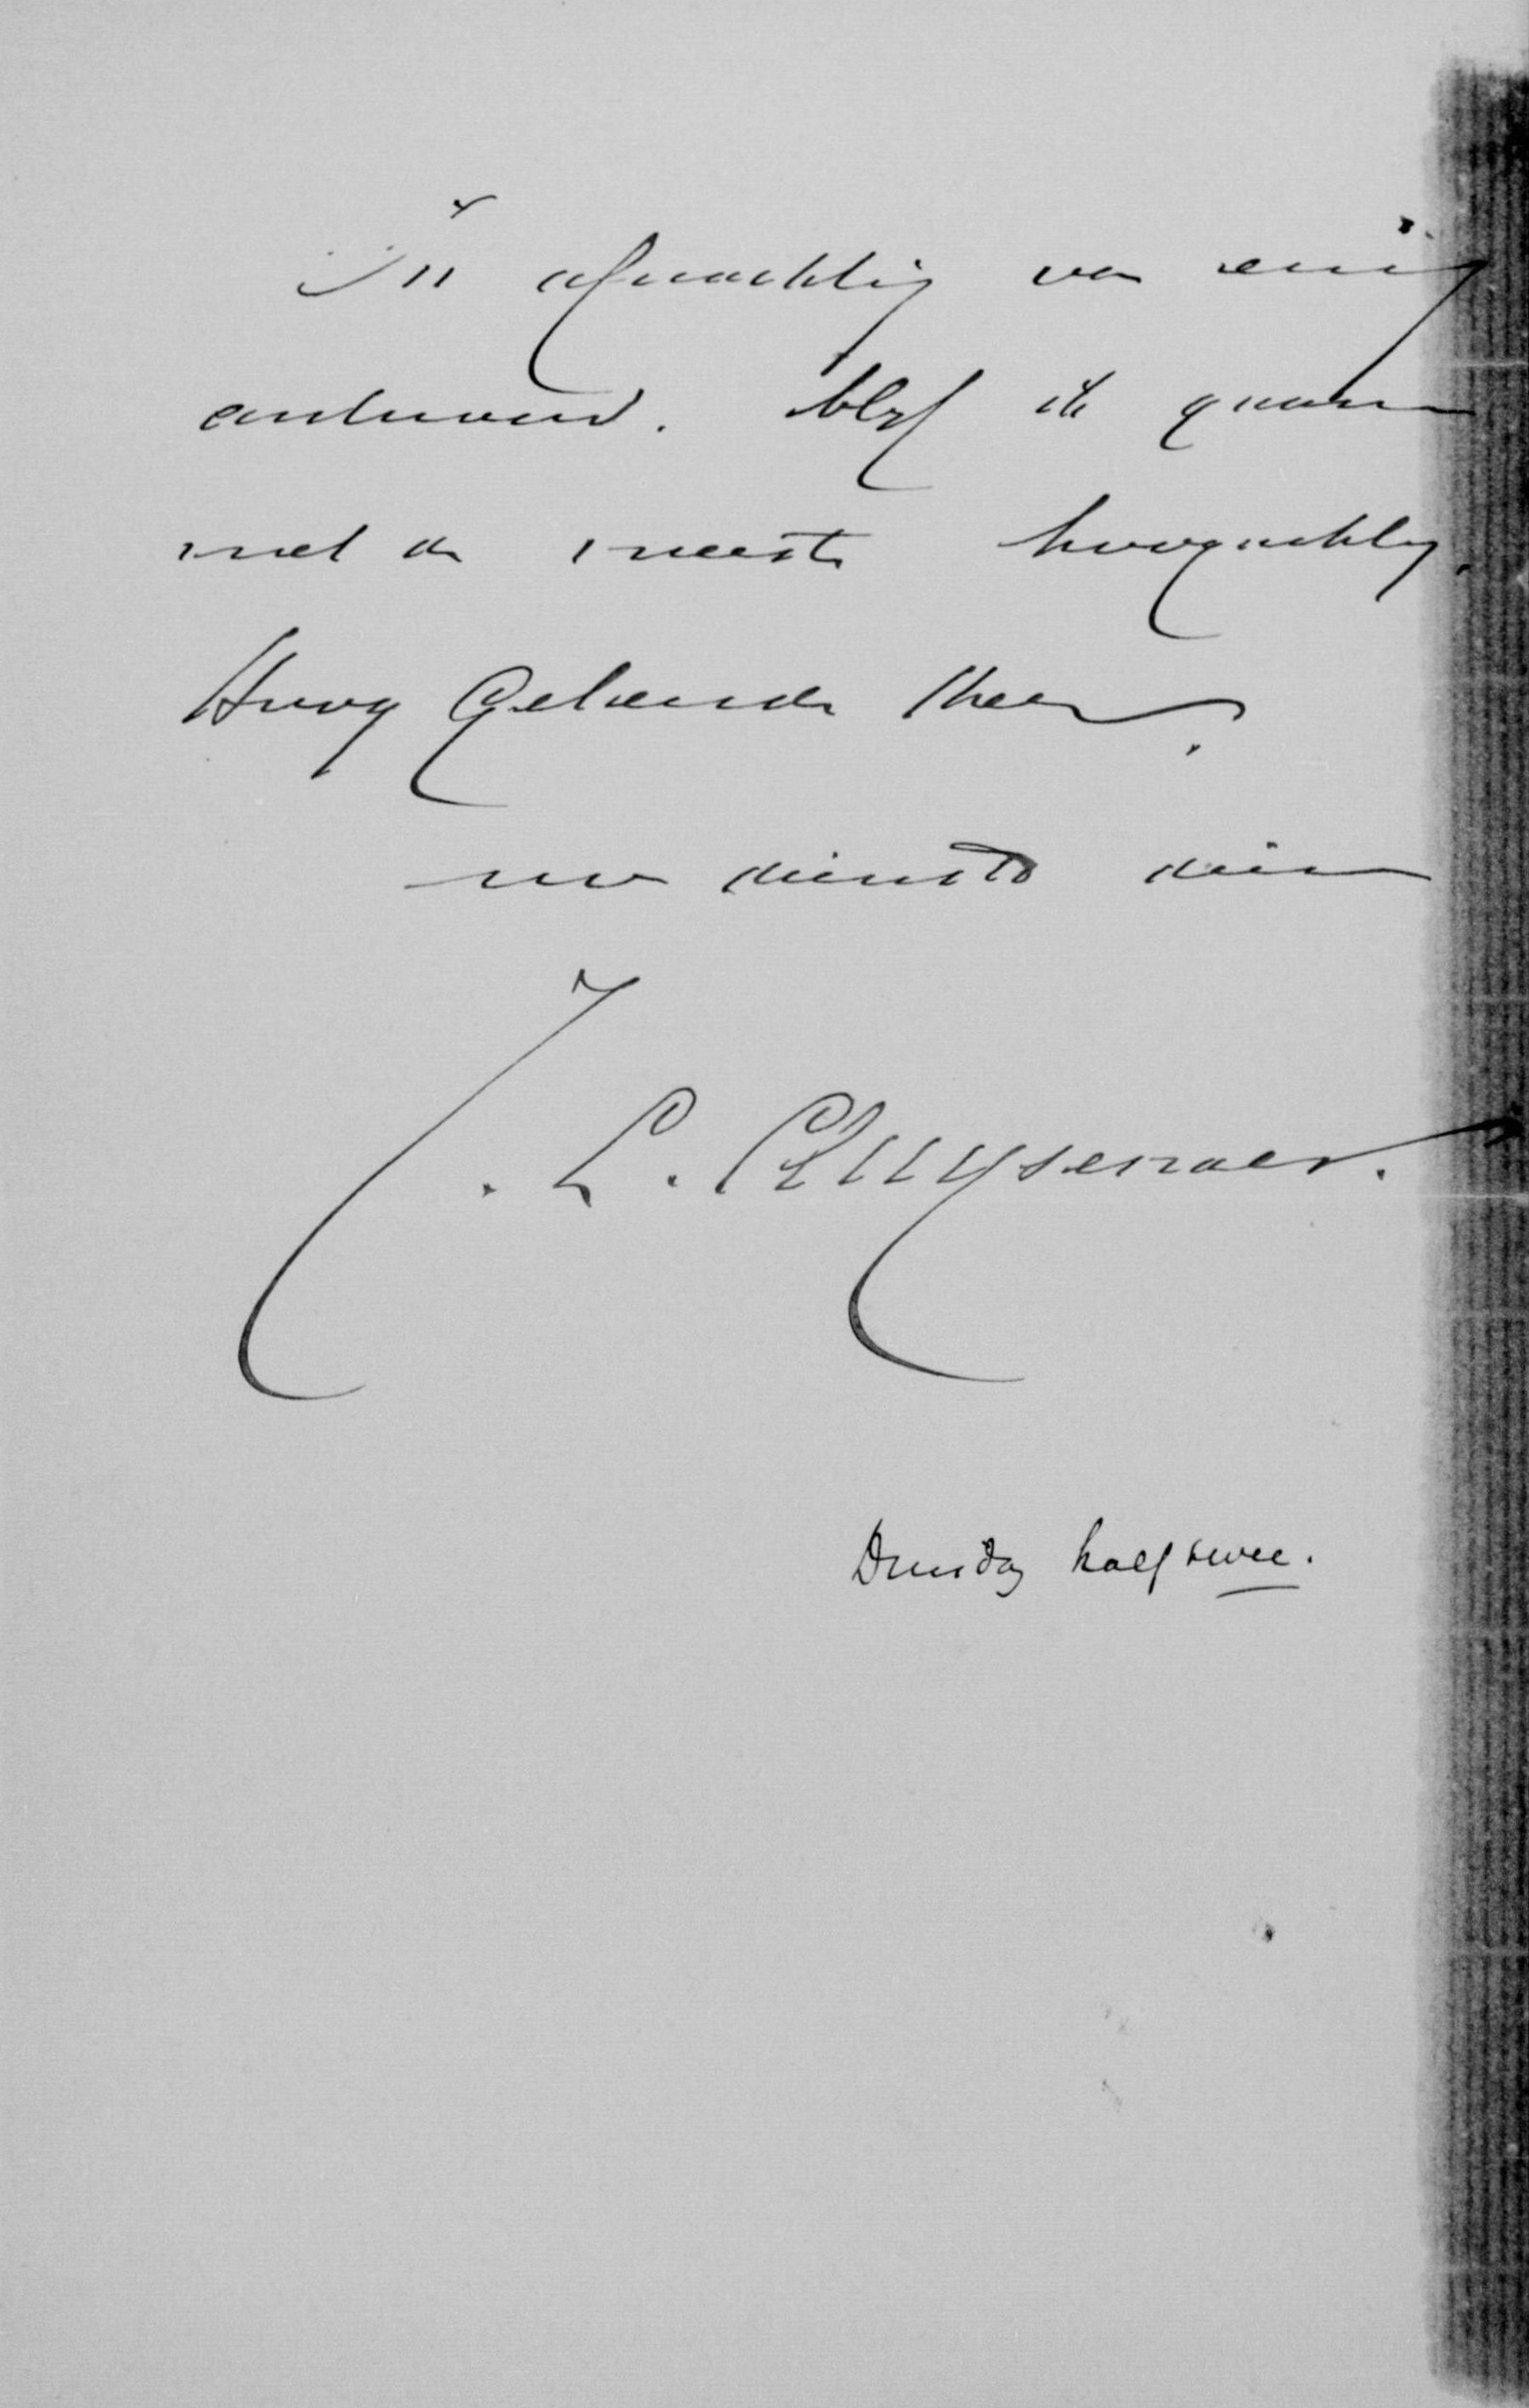 In afwachting van eenig
antwoord. blijf ik gaarne
met de meeste hoogachting.
Hoog Geleerde Heer.
uw dienstw dien
J. L. Cluysenaer.
Dinsdag half twee.